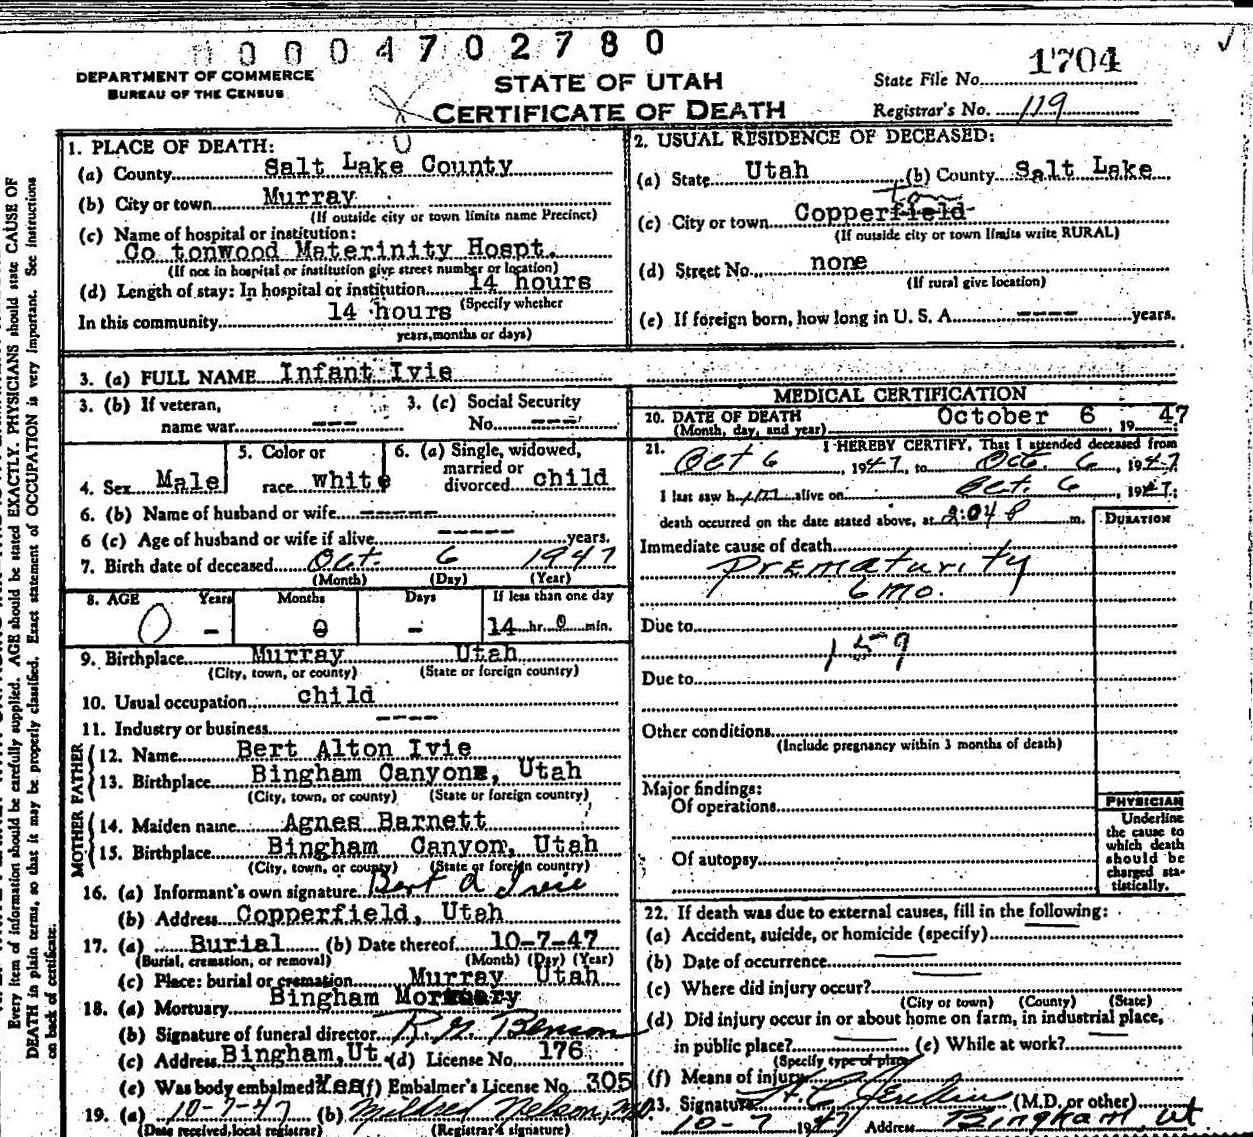 0004702780
DEPARTMENT OF COMMERCE
BUREAU OF THE CENSUS
STATE OF UTAH
CERTIFICATE OF DEATH
State File No. 1704
Registrar's No. 119
Every item of information should be carefully supplied. AGE should be stated EXACTLY. PHYSICIANS should state CAUSE OF
DEATH in plain terms, so that it may be properly classified. Exact statement of OCCUPATION is very important. See instructions
on back of certificate.
1. PLACE OF DEATH:
(a) County Salt Lake County
(b) City or town Murray
(If outside city or town limits name Precinct)
(c) Name of hospital or institution:
Co tonwood Materinity Hospt.
(If not in hospital or institution give street number or location)
(d) Length of stay: In hospital or institution 14 hours
(Specify whether
In this community 14 hours
years, months or days)
2. USUAL RESIDENCE OF DECEASED:
(a) State Utah (b) County Salt Lake
(c) City or town Copperfield
(If outside city or town limits write RURAL)
(d) Street No. none
(If rural give location)
(e) If foreign born, how long in U. S. A. ---- years.
3. (a) FULL NAME Infant Ivie
3. (b) If veteran,
name war ---
3. (c) Social Security
No. ---
4. Sex Male
5. Color or
race white
6. (a) Single, widowed,
married or
divorced child
6. (b) Name of husband or wife -----
6 (c) Age of husband or wife if alive ----- years.
7. Birth date of deceased Oct. 6 1947
(Month) (Day) (Year)
8. AGE Years Months Days If less than one day
0 - 0 - 14 hr. 0 min.
9. Birthplace Murray Utah
(City, town, or county) (State or foreign country)
10. Usual occupation child
11. Industry or business ----
FATHER
12. Name Bert Alton Ivie
13. Birthplace Bingham Canyon, Utah
(City, town, or county) (State or foreign country)
MOTHER
14. Maiden name Agnes Barnett
15. Birthplace Bingham Canyon, Utah
(City, town, or county) (State or foreign country)
16. (a) Informant's own signature Bert A Ivie
(b) Address Copperfield, Utah
17. (a) Burial (b) Date thereof 10-7-47
(Burial, cremation, or removal) (Month) (Day) (Year)
(c) Place: burial or cremation Murray Utah
18. (a) Mortuary Bingham Mortuary
(b) Signature of funeral director Benson
(c) Address Bingham, Ut. (d) License No. 176
(e) Was body embalmed Yes (f) Embalmer's License No. 305
19. (a) 10-7-47 (b) Mildred Nelson, M.D.
(Date received, local registrar) (Registrar's signature)
MEDICAL CERTIFICATION
20. DATE OF DEATH October 6, 1947
(Month, day, and year)
21. I HEREBY CERTIFY, That I attended deceased from
Oct 6, 1947, to Oct. 6, 1947
I last saw him alive on Oct. 6, 1947;
death occurred on the date stated above, at 2:04 P m.
DURATION
Immediate cause of death
Prematurity
6 mo.
Due to
159
Due to
Other conditions
(Include pregnancy within 3 months of death)
Major findings:
Of operations
Of autopsy
PHYSICIAN
Underline
the cause to
which death
should be
charged sta-
tistically.
22. If death was due to external causes, fill in the following:
(a) Accident, suicide, or homicide (specify)
(b) Date of occurrence
(c) Where did injury occur?
(City or town) (County) (State)
(d) Did injury occur in or about home on farm, in industrial place,
in public place? (e) While at work?
(Specify type of place)
(f) Means of injury
23. Signature (M.D. or other)
10-7 1947 Address Bingham, Ut